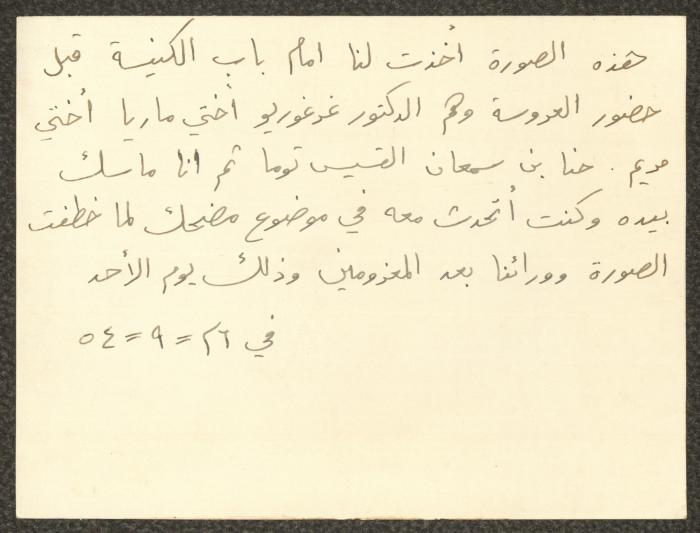 هذه الصورة أُخذت لنا امام باب الكنيسة قبل
حضور العروسة وهم الدكتور غرغوريو أُختي ماريا أُختي
مريم. حنا بن سمعان القسيس توما ثم انا ماسك
بيده وكنت أتحدث معه في موضوع مضحك لما خطفت
الصورة وورائنا بعد المعزومين وذلك يوم الأحد
في ٢٦ = ٩ = ٥٤